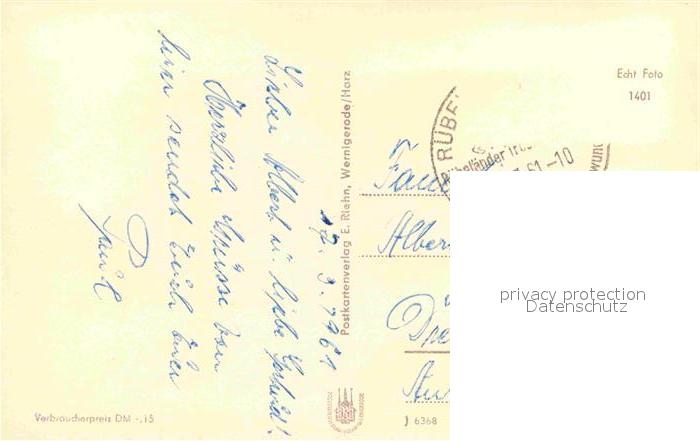 Echt Foto
1401
RÜBE
Rübeländer
61-10
17. 3. 1961
Lieber Albert u. liebe
Herzliche Grüsse von
hier sendet Euch Euer
Paul
Postkartenverlag E. Riehn, Wernigerode/Harz
Fam
Alber
Dre
privacy protection
Datenschutz
Verbraucherpreis DM -,15
J 6368